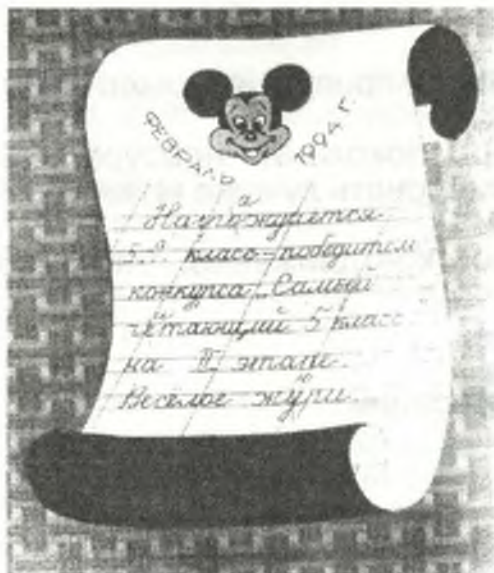 ФЕВРАЛЬ 1994 Г.
Награждается
5 класс - победитель
конкурса "Самый
читающий 5 класс"
на III этапе.
Весёлое жюри.